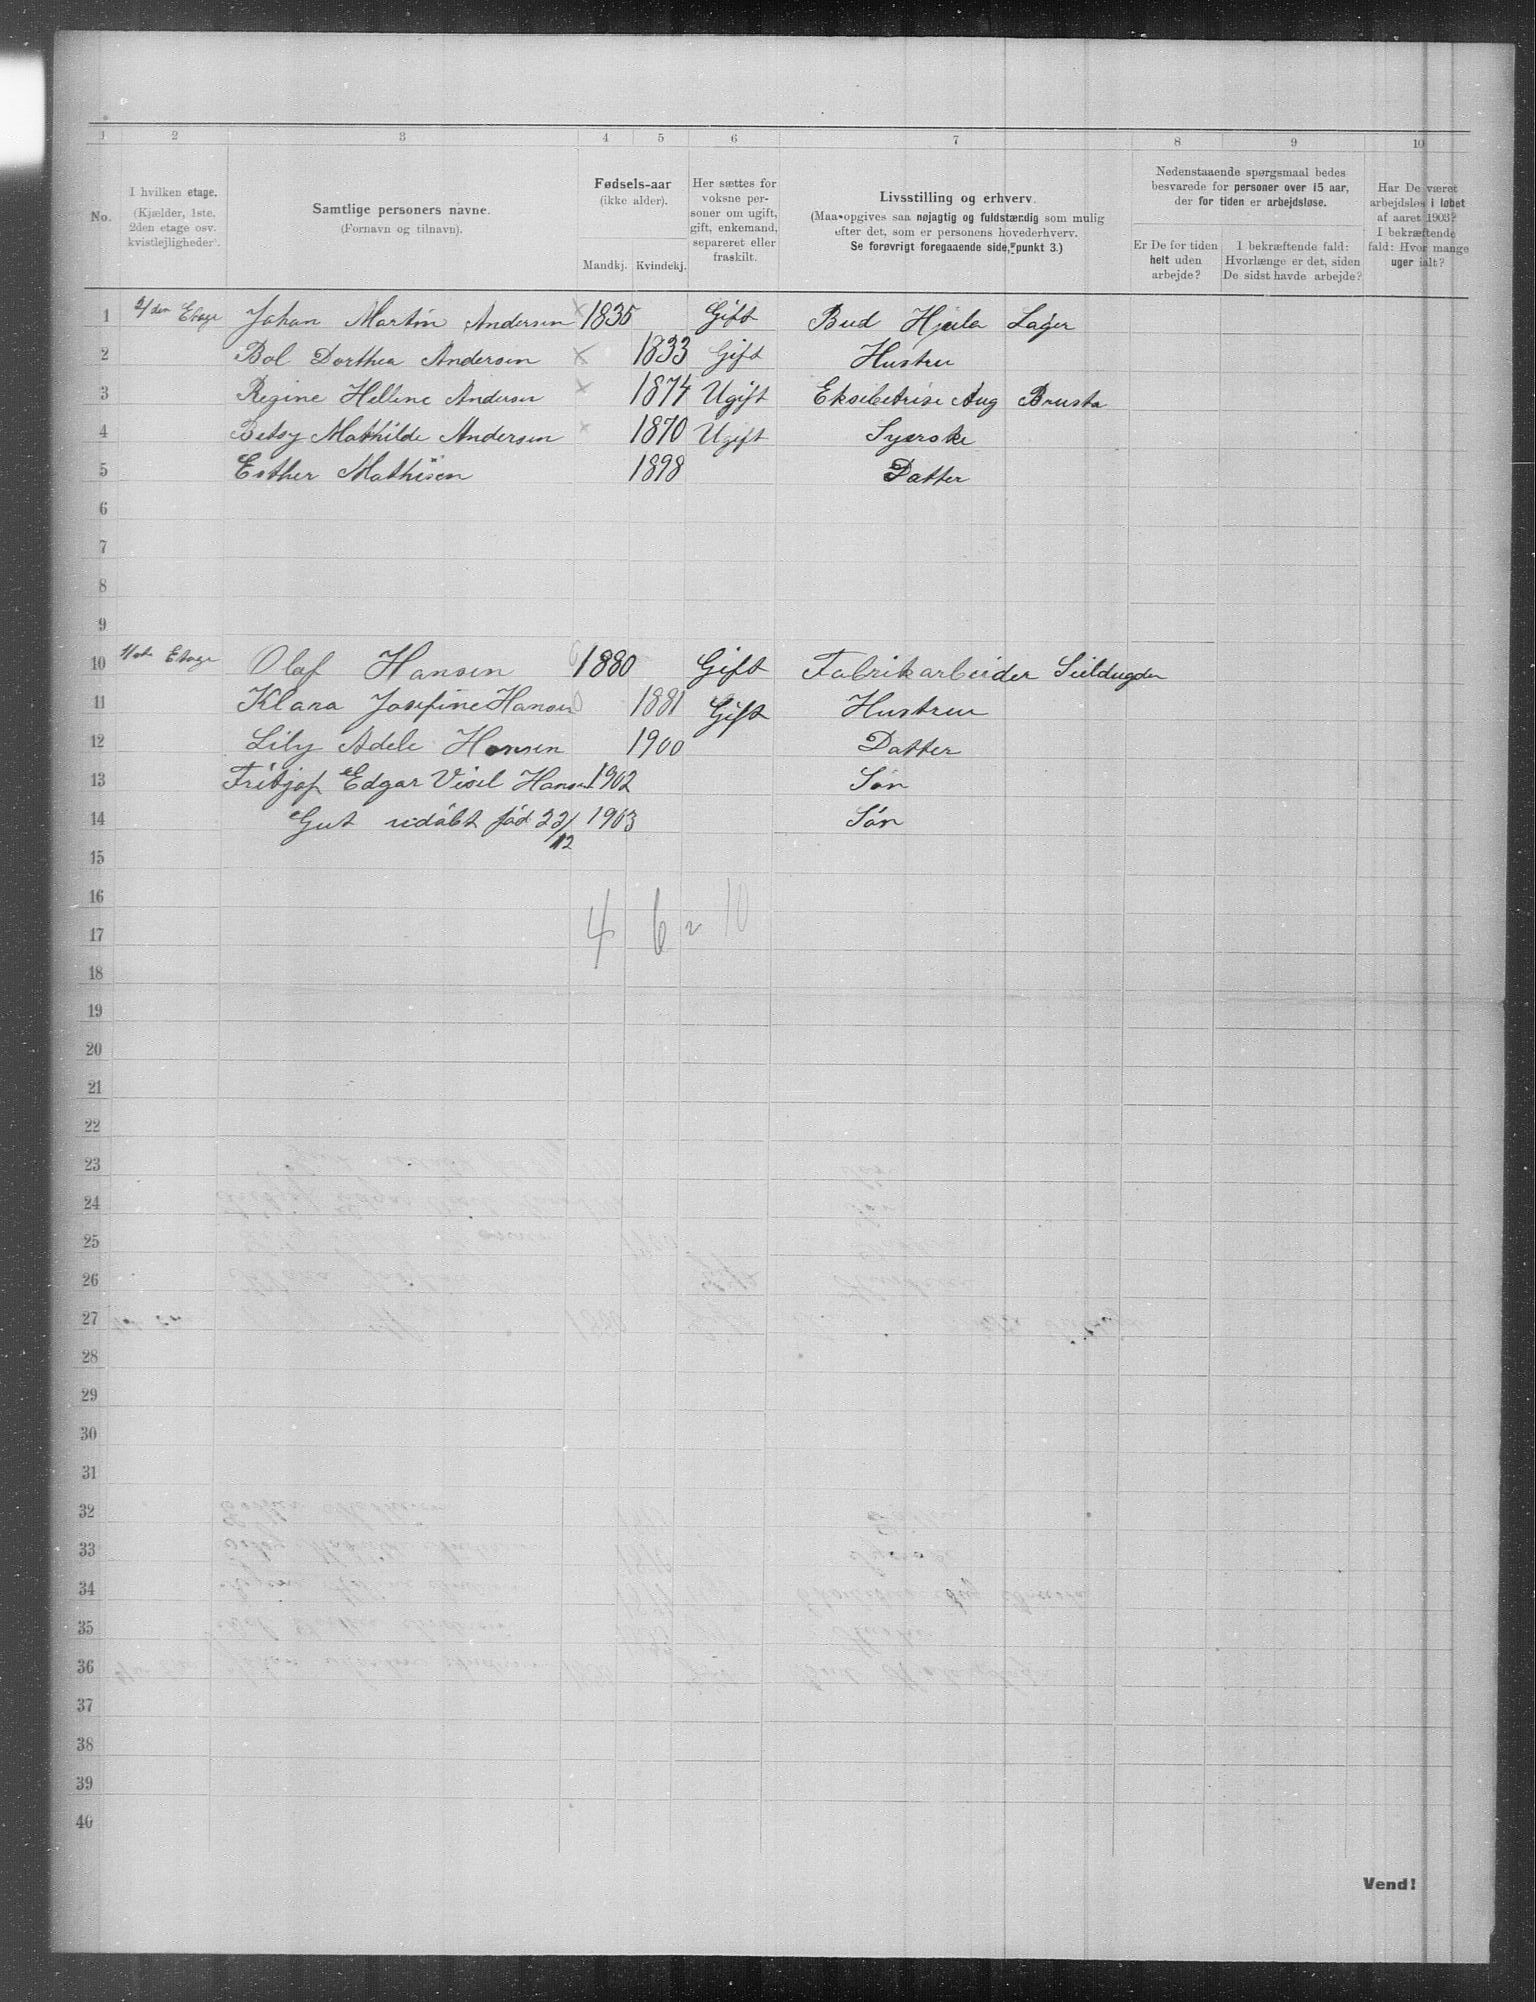 1 2 3 4 5 6 7 8 9 10
No.
I hvilken etage.
(Kjælder, 1ste.
2den etage osv.
kvistlejligheder).
Samtlige personers navne.
(Fornavn og tilnavn).
Fødsels-aar
(ikke alder).
Mandkj. Kvindekj.
Her sættes for
voksne per-
soner om ugift,
gift, enkemand,
separeret eller
fraskilt.
Livsstilling og erhverv.
(Maa opgives saa nøjagtig og fuldstændig som mulig
efter det, som er personens hovederhverv.
Se forøvrigt foregaaende side, punkt 3.)
Nedenstaaende spørgsmaal bedes
besvarede for personer over 15 aar,
der for tiden er arbejdsløse.
Er De for tiden
helt uden
arbejde?
I bekræftende fald:
Hvorlænge er det, siden
De sidst havde arbejde?
Har De været
arbejdsløs i løbet
af aaret 1903?
I bekræftende
fald: Hvor mange
uger ialt?
1 2/den Etage Johan Martin Andersen × 1835 Gift Bud Hjula Lager
2 Bol Dorthea Andersen × 1833 Gift Hustru
3 Regine Helline Andersen × 1874 Ugift Eksebetrise Aug Brusta
4 Betsy Mathilde Andersen × 1870 Ugift Syerske
5 Esther Mathisen 1898 Datter
6
7
8
9
10 1/ste Etage Olaf Hansen 1880 Gift Fabrikarbeider Seildugden
11 Klara Josefine Hansen 0 1881 Gift Hustru
12 Lily Adele Hansen 1900 Datter
13 Fritjof Edgar Visel Hansen 1902 Søn
14 Gut udøbt fød 22/12 1903 Søn
15
16
17 4 6 = 10
18
19
20
21
22
23
24
25
26
27
28
29
30
31
32
33
34
35
36
37
38
39
40
Vend!